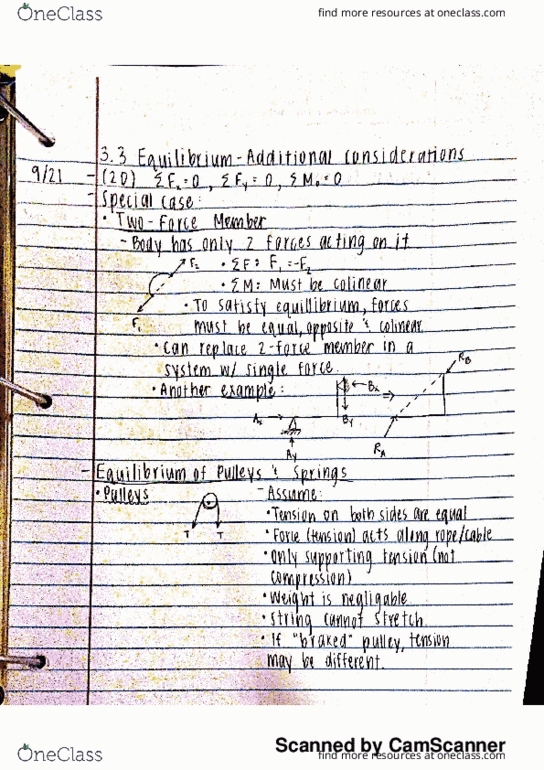 OneClass
find more resources at oneclass.com
3.3 Equilibrium-Additional Considerations
9/21 - (2D) ΣFx=0, ΣFy=0, ΣMo=0
- Special Case:
• Two-Force Member
- Body has only 2 forces acting on it
F2 • ΣF: F1=-F2
• ΣM: Must be colinear
• To satisfy equillibrium, forces
F1 must be equal, opposite & colinear
• Can replace 2-force member in a
system w/ single force.
RB
• Another example:
Bx
Ax
By
Ay
RA
- Equilibrium of Pulleys & Springs
• Pulleys
- Assume:
• Tension on both sides are equal
T T
• Force (tension) acts along rope/cable
• Only supporting tension (not
compression)
• Weight is negligable
• String cannot stretch
• If "braked" pulley, tension
may be different.
Scanned by CamScanner
OneClass
find more resources at oneclass.com